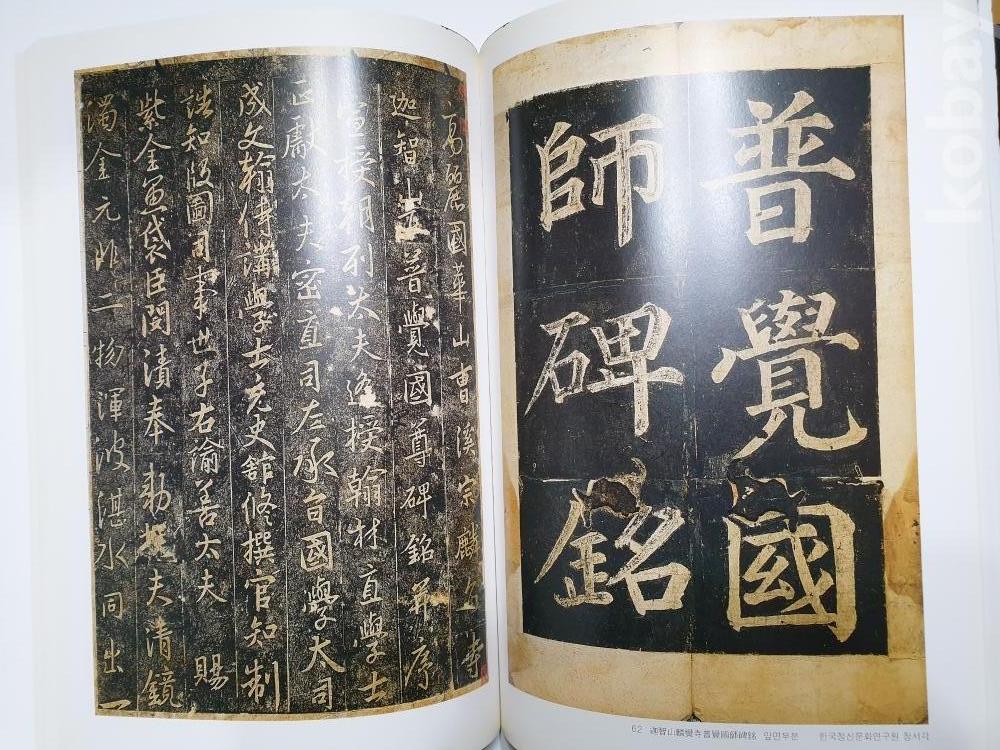 普覺國
師碑銘
62 迦智山麟覺寺普覺國師碑銘 앞면부분 한국정신문화연구원 장서각
高麗國華山曹溪宗麟角寺
迦智山下普覺國尊碑銘幷序
宣授朝列大夫遙授翰林直學士
正獻太夫密直司左承旨國學大司
成文翰侍講學士充史館修撰官知制
誥知版圖司事世子右諭善太夫 賜
紫金魚袋臣閔漬奉 勅撰 夫清鏡
濁金元非二物渾波湛水同出一
kobay